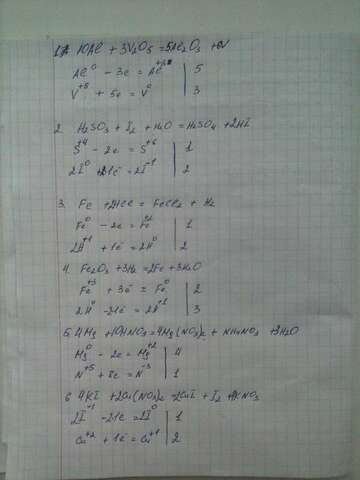 1. 10Al + 3V₂O₅ = 5Al₂O₃ + 6V
Al⁰ - 3e = Al⁺³ | 5
V⁺⁵ + 5e = V⁰ | 3
2. H₂SO₃ + I₂ + H₂O = H₂SO₄ + 2HI
S⁺⁴ - 2e = S⁺⁶ | 1
2I⁰ + 2·1e = 2I⁻¹ | 2
3. Fe + 2HCl = FeCl₂ + H₂
Fe⁰ - 2e = Fe⁺² | 1
2H⁺¹ + 1e = 2H⁰ | 2
4. Fe₂O₃ + 3H₂ = 2Fe + 3H₂O
Fe⁺³ + 3e = Fe⁰ | 2
2H⁰ - 2·1e = 2H⁺¹ | 3
5. 4Mg + 10HNO₃ = 4Mg(NO₃)₂ + NH₄NO₃ + 3H₂O
Mg⁰ - 2e = Mg⁺² | 4
N⁺⁵ + 8e = N⁻³ | 1
6. 4KI + 2Cu(NO₃)₂ = 2CuI + I₂ + 4KNO₃
2I⁻¹ - 2·1e = 2I⁰ | 1
Cu⁺² + 1e = Cu⁺¹ | 2